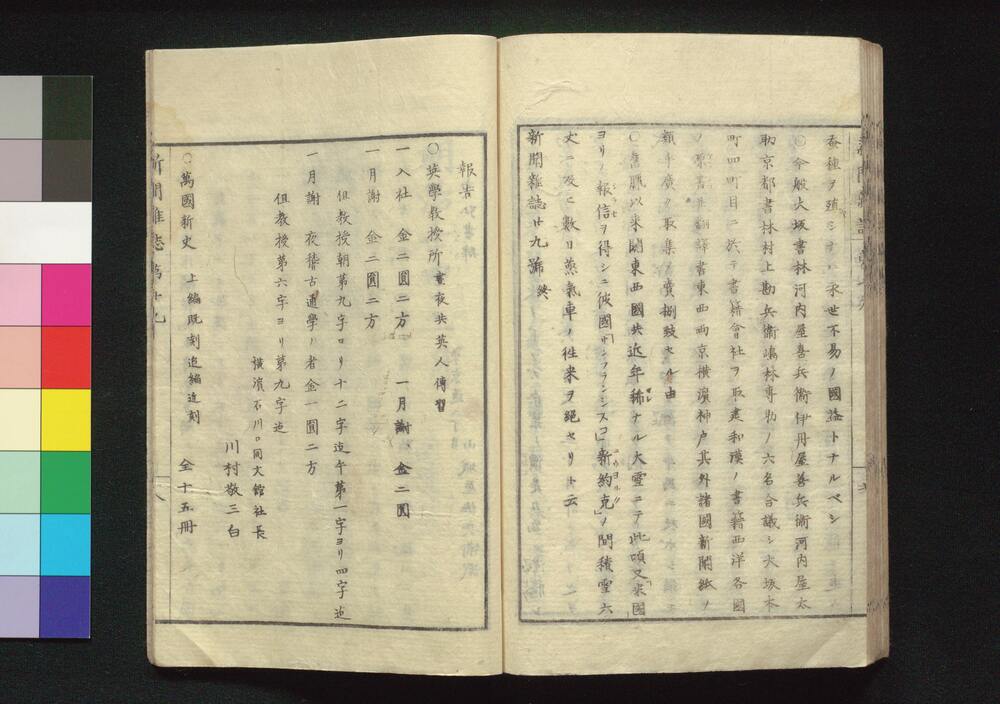 蚕種ヲ殖シナハ永世不易ノ國益トナルベシ
○今般大坂書林河内屋喜兵衛伊丹屋善兵衛河内屋太
助京都書林村上勘兵衛嶋林専助ノ六名合議シ大坂本
町四町目ニ於テ書籍會社ヲ取建和漢ノ書籍西洋各國
ノ原書并翻譯書東西両京横濵神戸其外諸國新聞紙ノ
類ヲ廣ク取集メ賣捌致セル由
○舊臘以来関東西國共近年稀ナル大雪ニテ此頃又米國
ヨリノ報信ヲ得シニ彼國サンフランシスコ新約克ノ間積雪六
丈ニ及ビ数日蒸氣車ノ徃来ヲ絶セリト云
新聞雑誌廿九號 終
報告
○英學教授所 晝夜共英人傳習
一入社 金二圓二方 一月謝 金二圓
一月謝 金二圓二方
但教授朝第九字ヨリ十二字迠午第一字ヨリ四字迠
一月謝 夜稽古通學ノ者金一圓二方
但教授第六字ヨリ第九字迠
横濵石川口同文館社長
川村敬三白
○萬國新史 上編既刻追編近刻 全十五冊
新聞雑誌